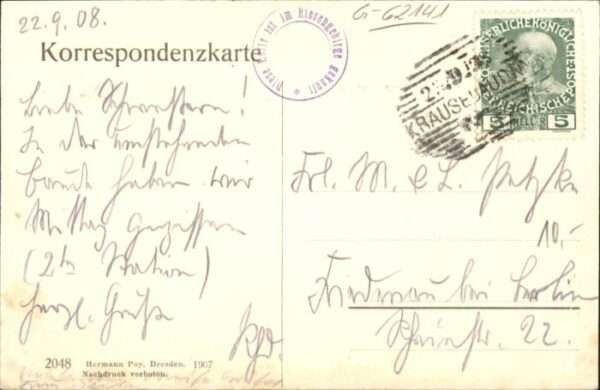 22.9.08.
Korrespondenzkarte
Diese Karte ist im Riesengebirge gekauft
G-62141
KAISERLICHE KÖNIGLICHE
ÖSTERREICHISCHE POST
5 HELLER 5
KRAUSEBAUDEN
Liebe Schwestern!
In der umstehenden
Baude haben wir
Mittag gegessen
(2te Station)
Herzl. Grüße
Frl. M. & L. Petzke
10,-
Friedenau bei Berlin
22.
2048 Hermann Poy, Dresden. 1907
Nachdruck verboten.